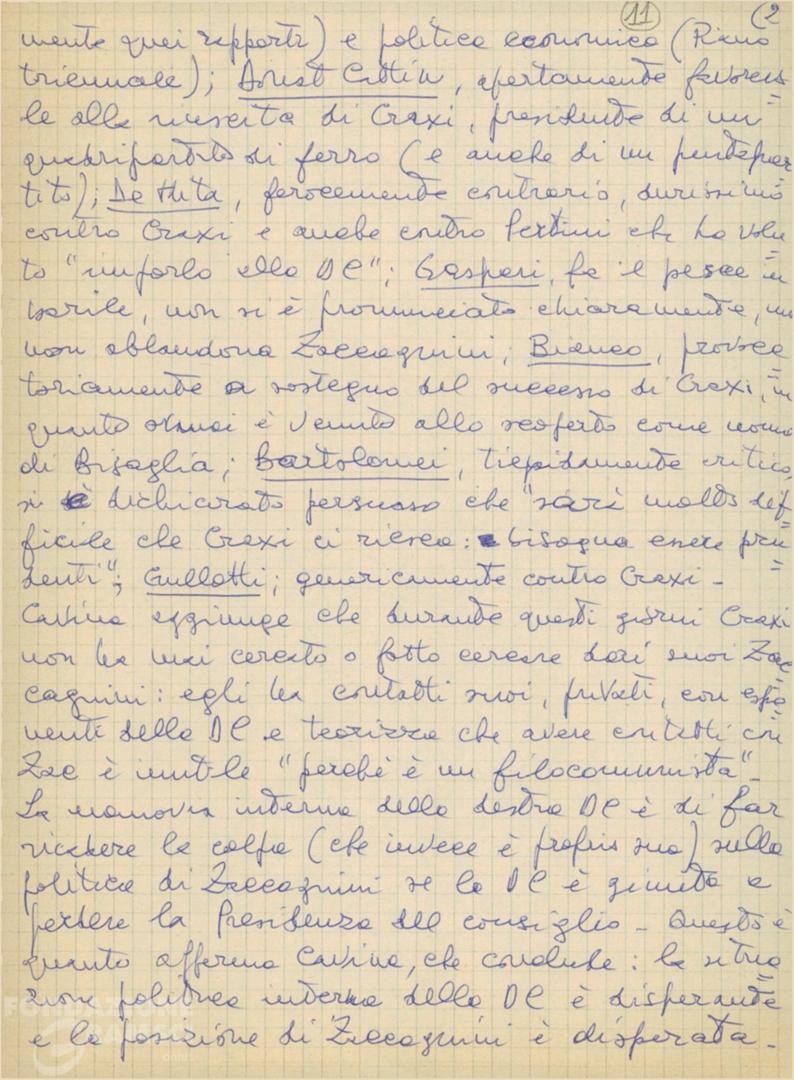 11 (2
mente quei rapporti) e politica economica (Piano
triennale); Donat Cattin, apertamente favorevo=
le alla riuscita di Craxi, presidente di un
quadripartito di ferro (e anche di un pentapar=
tito); De Mita, ferocemente contrario, durissimo
contro Craxi e anche contro Pertini che ha volu=
to "imporlo alla DC"; Gaspari, fa il pesce in
barile, non si è pronunciato chiaramente, ma
non abbandona Zaccagnini; Bianco, provoca=
toriamente a sostegno del successo di Craxi, in
quanto ormai è venuto allo scoperto come uomo
di Bisaglia; Bartolomei, tiepidamente critico,
si è dichiarato persuaso che "sarà molto dif=
ficile che Craxi ci riesca: bisogna essere pru=
denti"; Gullotti; genericamente contro Craxi -
Cavina aggiunge che durante questi giorni Craxi
non ha mai cercato o fatto cercare dai suoi Zac=
cagnini: egli ha contatti suoi, privati, con espo=
nenti della DC e teorizza che avere contatti con
Zac è inutile "perché è un filocomunista" -
La manovra interna della destra DC è di far
ricadere la colpa (che invece è propria sua) sulla
politica di Zaccagnini se la DC è giunta a
perdere la Presidenza del consiglio - Questo è
quanto afferma Cavina, che conclude: la situa=
zione politica interna della DC è disperante
e la posizione di Zaccagnini è disperata -
FONDAZIONE